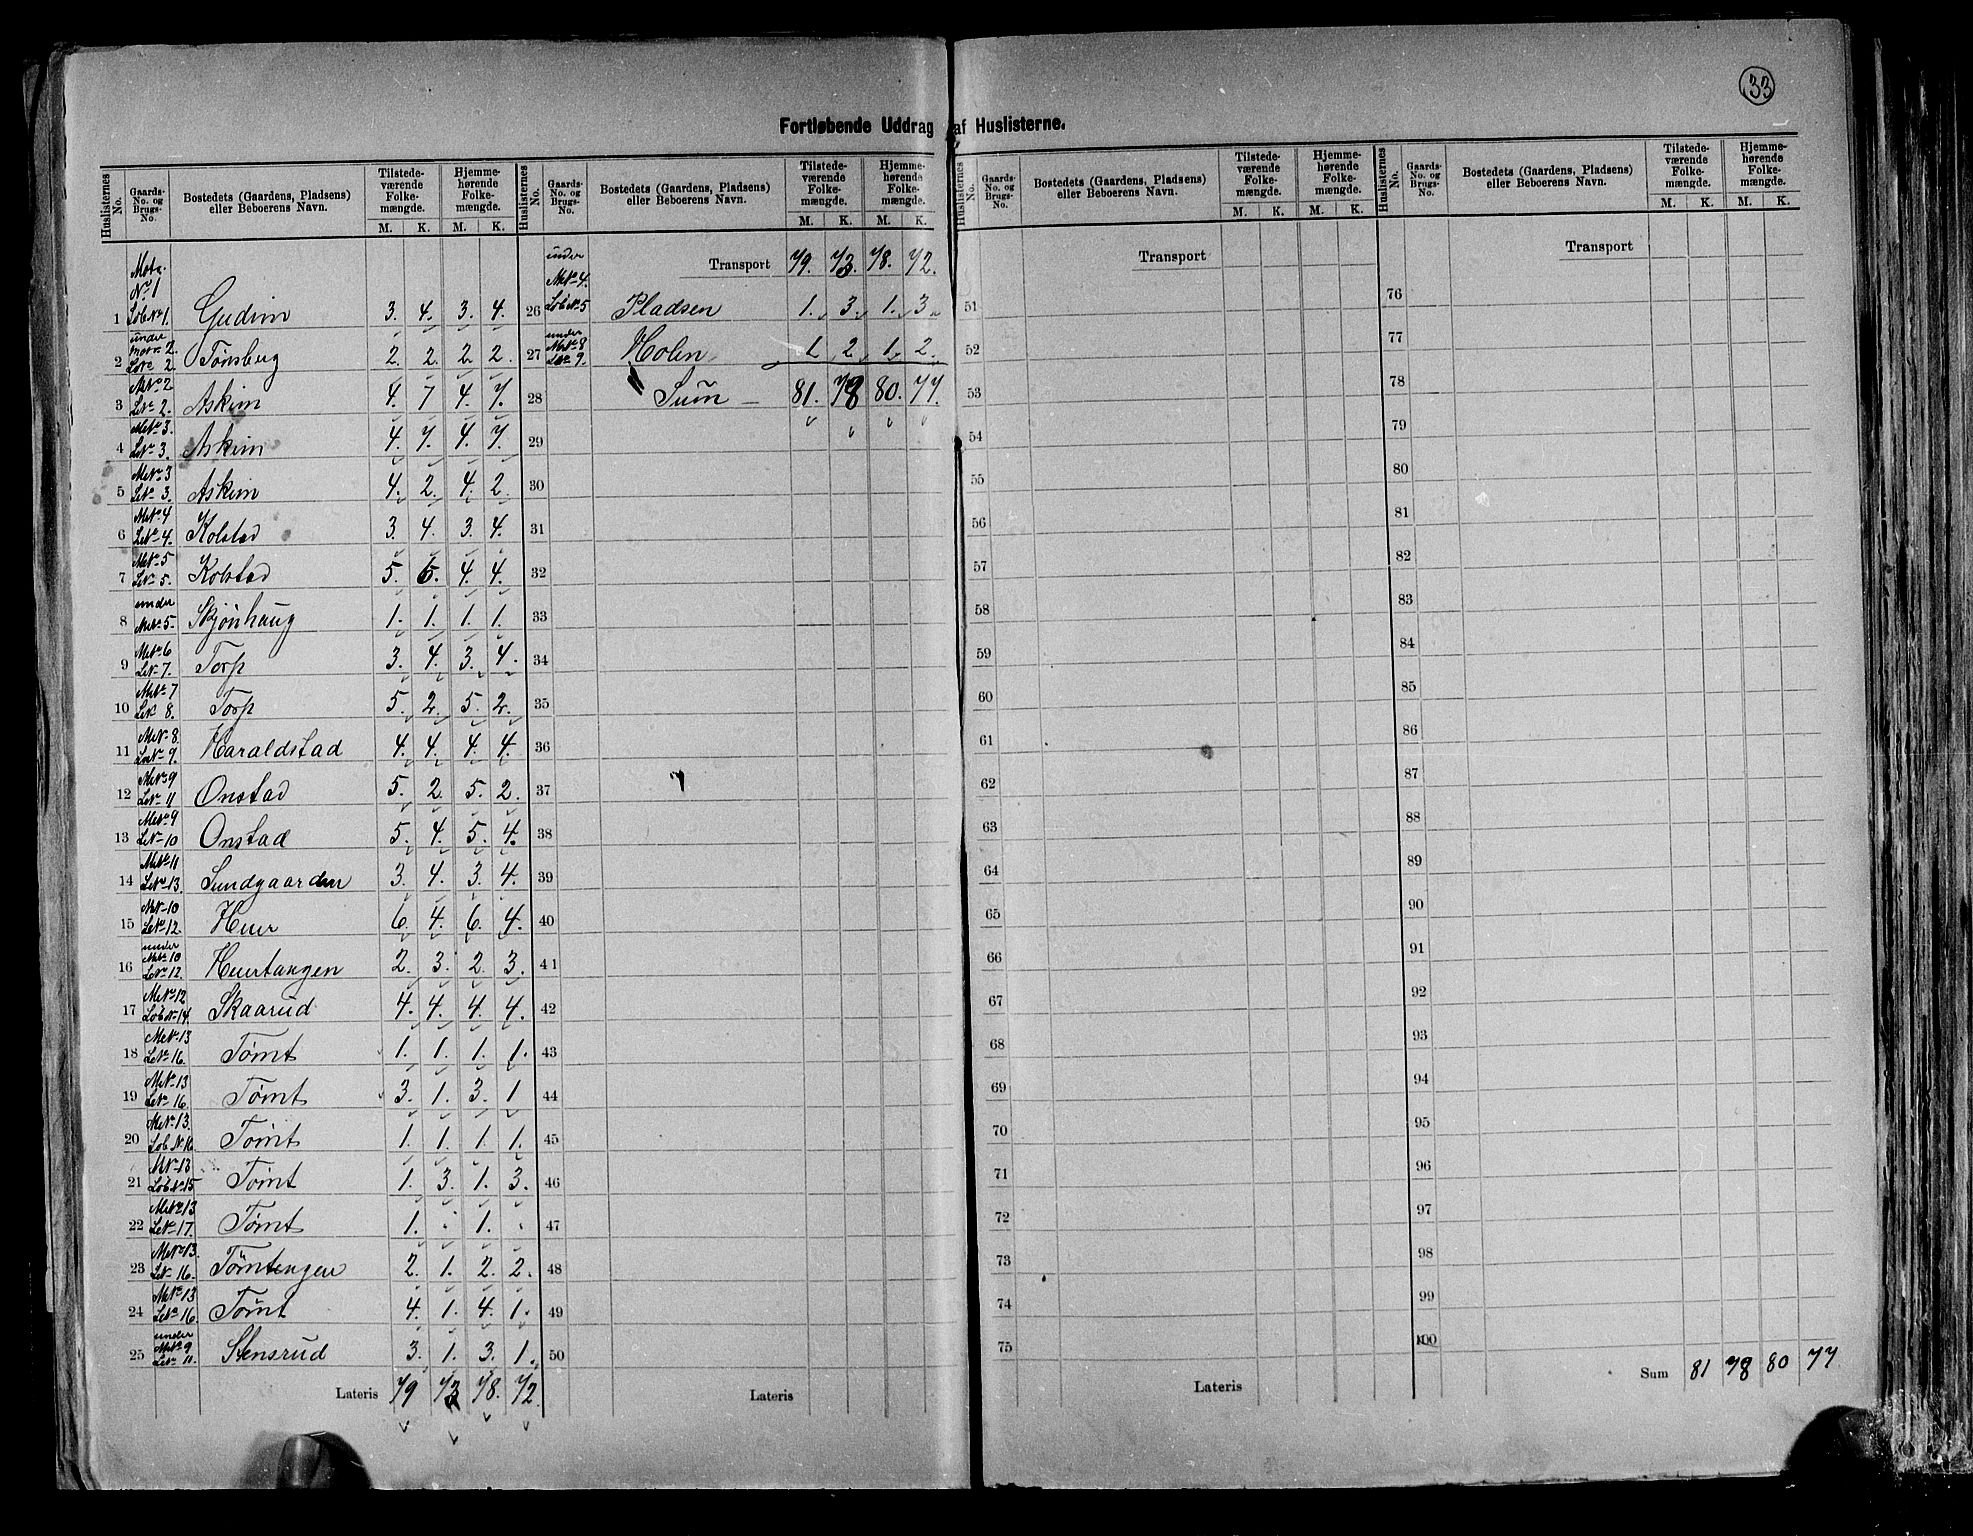 33
Fortløbende Uddrag af Huslisterne.
Huslisternes No. Gaards-No. og Brugs-No. Bostedets (Gaardens, Pladsens) eller Beboerens Navn. Tilstedeværende Folkemængde. M. K. Hjemmehørende Folkemængde. M. K.
1 Matr. No 1 Løb No 1. Gudim 3. 4. 3. 4.
2 under Matr. 2. LNo 2. Tonsberg 2. 2. 2. 2.
3 MNo 2 LNo 2. Askim 4. 7 4. 7.
4 MNo 3. LNo 3. Askim 4. 7. 4. 7.
5 MNo 3 LNo 3. Askim 4. 2. 4. 2.
6 MNo 4 LNo 4. Kolstad 3. 4. 3. 4.
7 MNo 5 LNo 5. Kolstad 5. 6. 4. 4.
8 under MNo 5. Skjønhaug 1. 1. 1. 1.
9 MNo 6 LNo 7. Torp 3. 4. 3. 4.
10 MNo 7 LNo 8. Torp 5. 2. 5. 2.
11 MNo 8. LNo 9. Haraldstad 4. 4. 4. 4.
12 MNo 9 LNo 11 Onstad 5. 2 5. 2.
13 MNo 9 LNo 10 Onstad 5. 4. 5. 4.
14 MNo 11 LNo 13. Sundgaarden 3. 4. 3. 4.
15 MNo 10 LNo 12. Huer 6. 4. 6. 4.
16 under MNo 10 LNo 12. Huertangen 2. 3. 2. 3.
17 MNo 12 Løb No 14. Skaarud 4. 4. 4. 4.
18 MNo 13 LNo 16. Tømt 1. 1. 1. 1.
19 MNo 13 LNo 16. Tømt 3. 1. 3. 1
20 MNo 13. Løb No 16. Tømt 1. 1. 1. 1.
21 MNo 13 Løb No 15 Tømt 1. 3. 1. 3.
22 MNo 13 LNo 17. Tømt 1. 1.
23 MNo 13. LNo 16. Tömtengen 2. 1. 2. 2.
24 MNo 13 LNo 16. Tømt 4. 1. 4. 1.
25 under MNo 9 LNo 11. Stensrud 3. 1. 3. 1.
Lateris 79 73 78. 72.
Huslisternes No. Gaards-No. og Brugs-No. Bostedets (Gaardens, Pladsens) eller Beboerens Navn. Tilstedeværende Folkemængde. M. K. Hjemmehørende Folkemængde. M. K.
Transport 79. 73. 78. 72.
26 under MNo 4. Løb No 5 Pladsen 1. 3. 1. 3.
27 under MNo 8 LNo 9. Holen 1 2. 1. 2.
28 Sum 81. 78 80. 77.
29
30
31
32
33
34
35
36
37
38
39
40
41
42
43
44
45
46
47
48
49
50
Lateris
Huslisternes No. Gaards-No. og Brugs-No. Bostedets (Gaardens, Pladsens) eller Beboerens Navn. Tilstedeværende Folkemængde. M. K. Hjemmehørende Folkemængde. M. K.
Transport
51
52
53
54
55
56
57
58
59
60
61
62
63
64
65
66
67
68
69
70
71
72
73
74
75
Lateris
Huslisternes No. Gaards-No. og Brugs-No. Bostedets (Gaardens, Pladsens) eller Beboerens Navn. Tilstedeværende Folkemængde. M. K. Hjemmehørende Folkemængde. M. K.
Transport
76
77
78
79
80
81
82
83
84
85
86
87
88
89
90
91
92
93
94
95
96
97
98
99
100
Sum 81 78 80 77